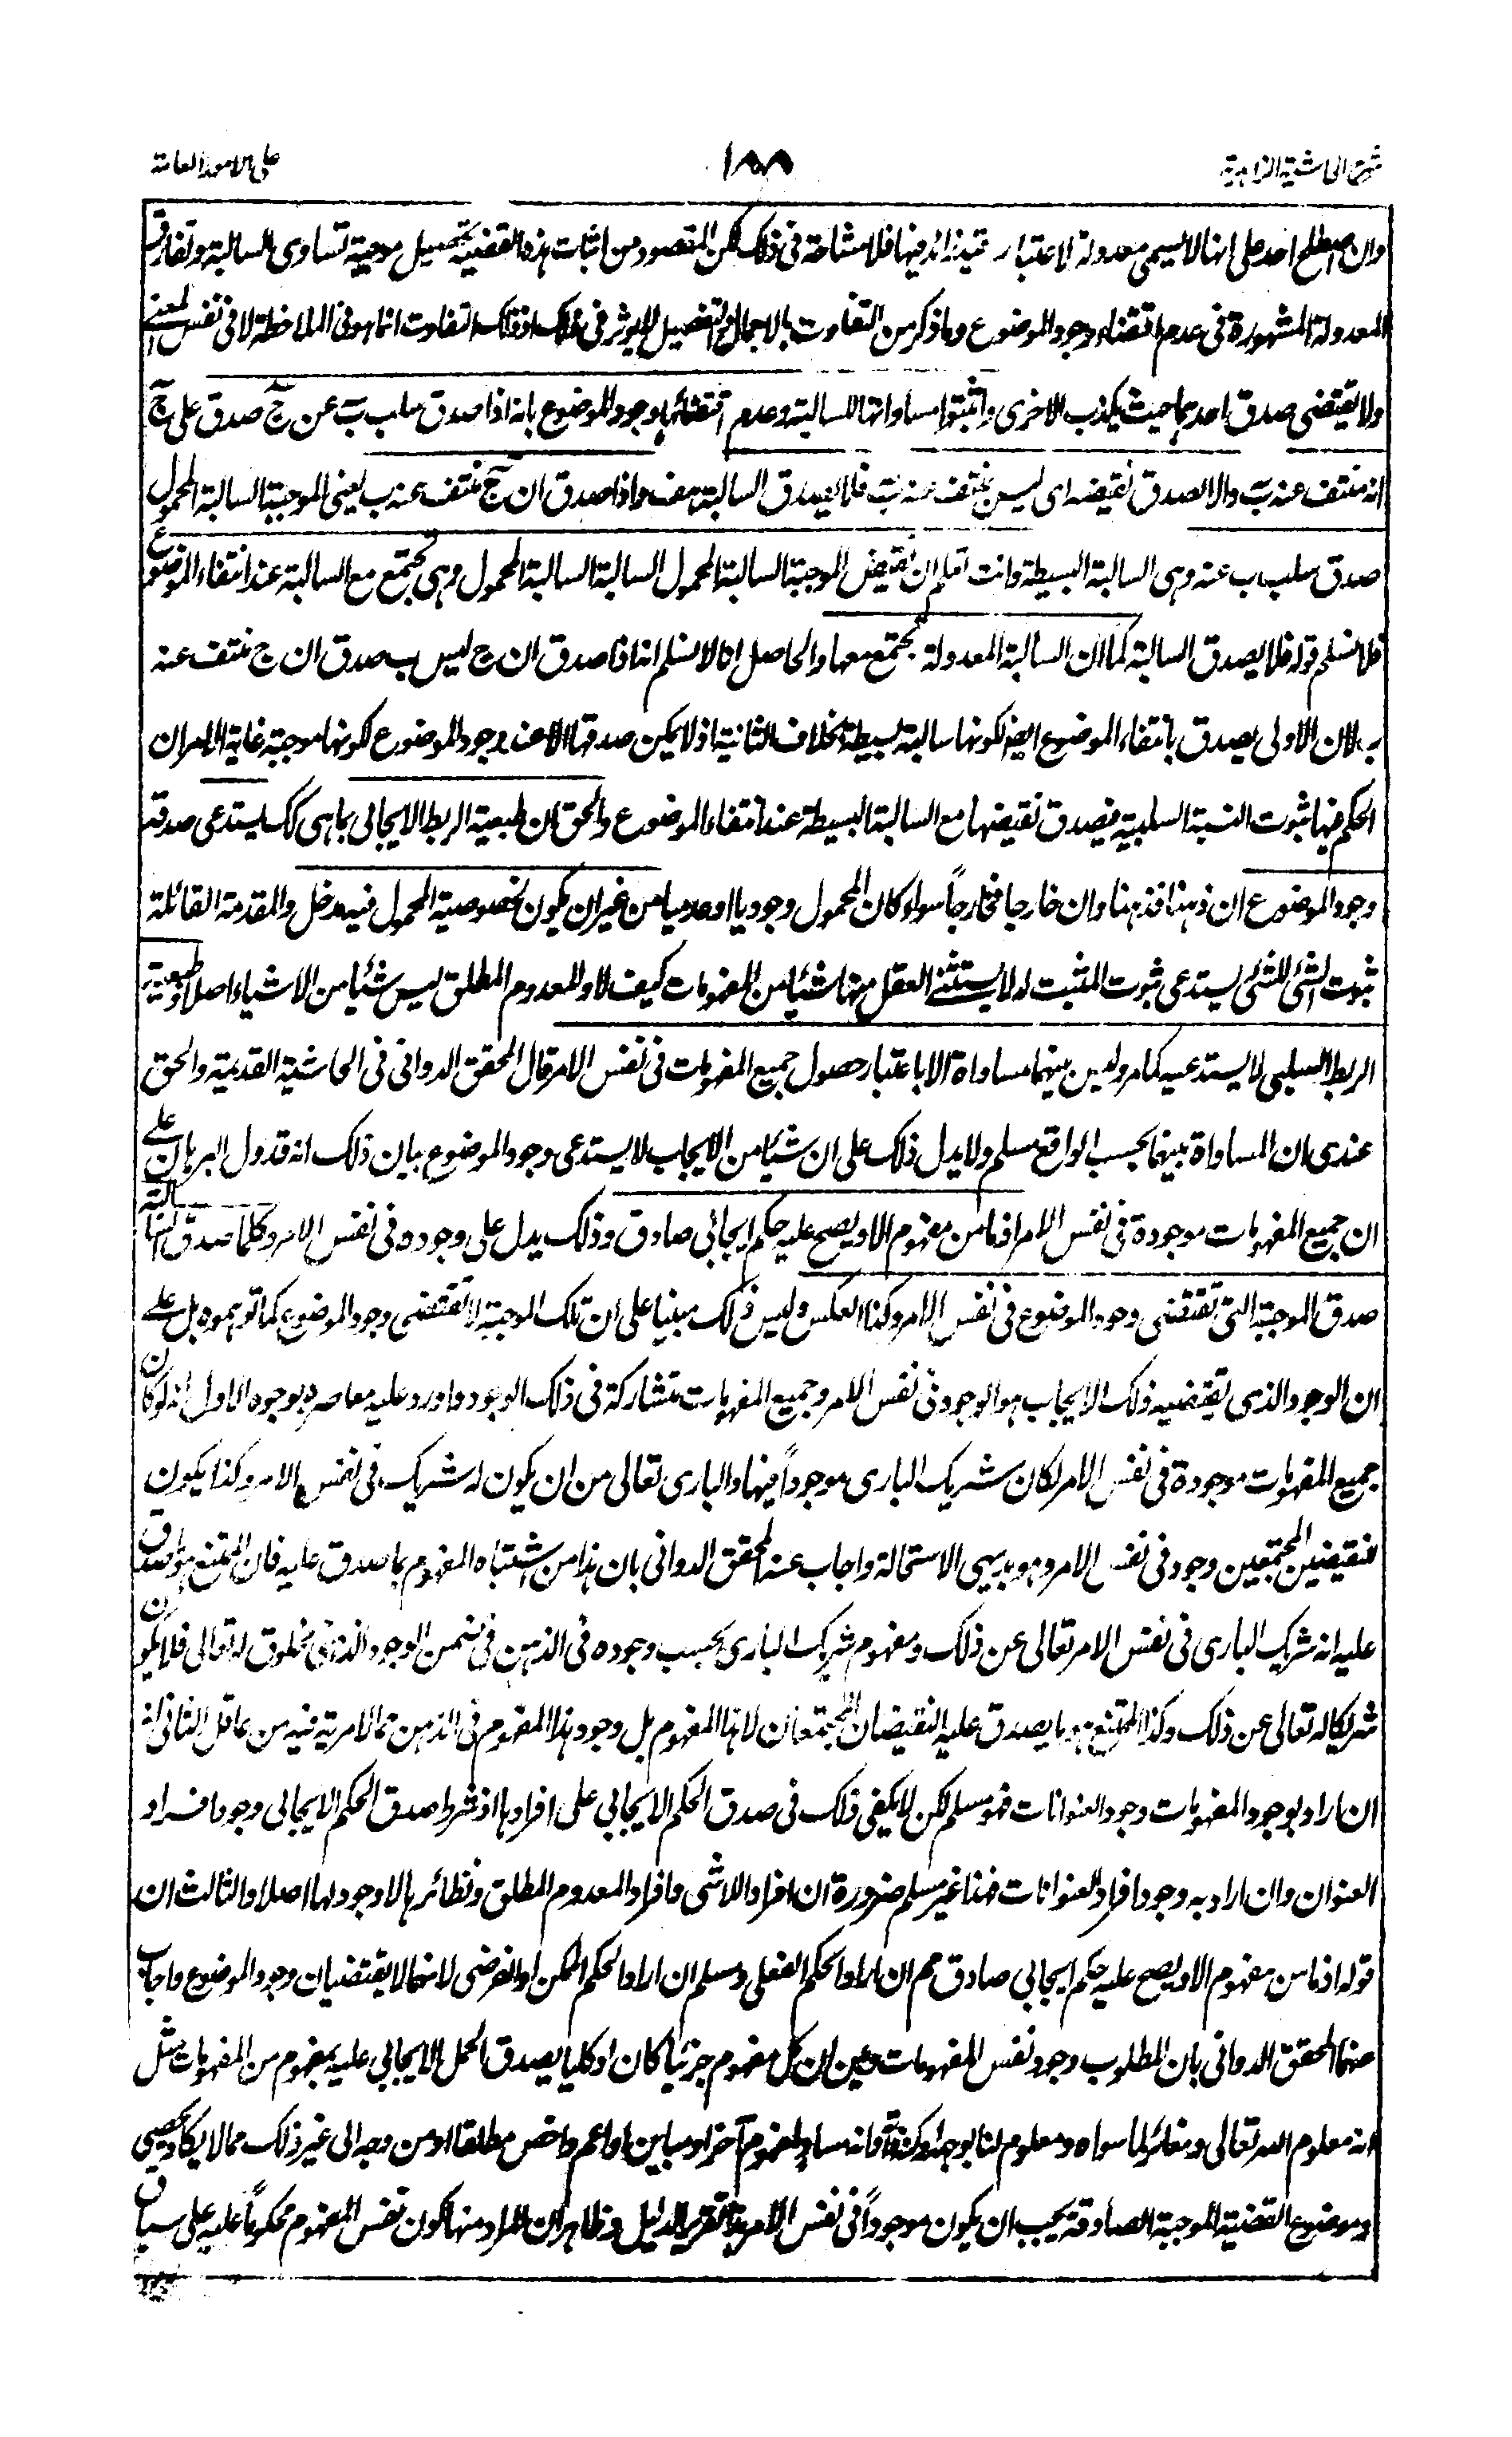 شرح الحاشية الزاهدية
١٨٨
على الامور العامة
وان اصطلح احد على انها لا يسمى معدولة لاعتبار قيد زائد فيها فلا مشاحة فى ذلك لكن المقصود من اثبات هذه القضية تحصيل موجبة تساوى السالبة وتفارق
المعدولة المشهورة فى عدم اقتضاء وجود الموضوع وما ذكر من التفاوت بالاجمال والتفصيل لا يوثر فى ذلك اذ ذلك التفاوت انما هو فى الملاحظة لا فى نفس المعنے
ولا يقتضى صدق احدهما حيث يكذب الاخرى واثبتوا مساواتها للسالبة وعدم اقتضائها وجود الموضوع بانه اذا صدق سلب بَ عن جَ صدق على جَ
انه منتف عنه بَ والا لصدق نقيضه اى ليس بمنتف عنه بَ فلا يصدق السالبة هف واذا صدق ان جَ منتف عنه ب يعنى الموجبة السالبة المحمول
صدق سلب ب عنه وهى السالبة البسيطة وانت تعلم ان نقيض الموجبة السالبة المحمول السالبة السالبة المحمول وهى تجتمع مع السالبة عند انتفاء الموضوع
فلا نسلم قوله فلا يصدق السالبة كما ان السالبة المعدولة تجتمع معها والحاصل انا لا نسلم انه اذا صدق ان ج ليس ب صدق ان ج منتف عنه
ب لان الاولى يصدق بانتفاء الموضوع ايضا لكونها سالبة بسيطة بخلاف الثانية اذ لا يمكن صدقها الا عند وجود الموضوع لكونها موجبة غاية الامر ان
الحكم فيها بثبوت النسبة السلبية فيصدق نقيضها مع السالبة البسيطة عند انتفاء الموضوع والحق ان طبيعة الربط الايجابى بما هى كك يستدعى صدقه
وجود الموضوع ان ذهنا فذهنا وان خارجا فخارجاً سواء كان المحمول وجوديا او عدميا من غير ان يكون لخصوصية المحمول فيه مدخل والمقدمة القائلة
ثبوت الشئ للشئ يستدعى ثبوت المثبت له لا يستثنے العقل منها شيئا من المفهومات كيف لا والمعدوم المطلق ليس شيئا من الاشياء اصلا وطبيعة
الربط السلبى لا يستدعيه كما مر وليس بينهما مساواة الا باعتبار حصول جميع المفهومات فى نفس الامر قال المحقق الدوانى فى الحاشية القديمة والحق
عندى ان المساواة بينهما بحسب الواقع مسلم ولا يدل ذلك على ان شيئا من الايجاب لا يستدعى وجود الموضوع بيان ذلك انه قد دل البرهان علے
ان جميع المفهومات موجودة فى نفس الامر اذ ما من مفهوم الا ويصح عليه حكم ايجابى صادق وذلك يدل على وجوده فى نفس الامر وكلما صدق السالبة
صدق الموجبة التى تقتضى وجود الموضوع فى نفس الامر وكذا العكس وليس ذلك مبنيا على ان تلك الموجبة لا تقتضى وجود الموضوع كما توهموه بل علے
ان الوجود الذى يقتضيه ذلك الايجاب هو الوجود فى نفس الامر وجميع المفهومات متشاركة فى ذلك الوجود واورد عليه معاصره بوجوه الاول انه لو كان
جميع المفهومات موجودة فى نفس الامر لكان شريك البارى موجوداً فيها والبارى تعالى من ان يكون له شريك فى نفس الامر وكذا يكون
للنقيضين المجتمعين وجود فى نفس الامر وهو بديهى الاستحالة واجاب عنه المحقق الدوانى بان هذا من اشتباه المفهوم بما صدق عليه فان الممتنع هو ما صدق
عليه انه شريك البارى فى نفس الامر تعالى عن ذلك ومفهوم شريك البارى بحسب وجوده فى الذهن فى ضمن الوجود الذهنى مخلوق له تعالى فلا يكون
شريكا له تعالى عن ذلك وكذا الممتنع هو ما يصدق عليه النقيضان المجتمعان لا هذا المفهوم بل وجود هذا المفهوم فى الذهن مما لا مرية فيه من عاقل الثانى انه
ان اراد بوجود المفهومات وجود العنوانات فهو مسلم لكن لا يكفى ذلك فى صدق الحكم الايجابى على افرادها اذ شرط صدق الحكم الايجابى وجود افراد
العنوان وان اراد به وجود افراد العنوانات فهذا غير مسلم ضرورة ان افراد اللاشى وافراد المعدوم المطلق ونظائرها لا وجود لها اصلا والثالث ان
قوله اذ ما من مفهوم الا ويصح عليه حكم ايجابى صادق مم ان اراد الحكم الفعلى ومسلم ان اراد الحكم الممكن او الفرضى لانهما لا يقتضيان وجود الموضوع واجاب
عنهما المحقق الدوانى بان المطلوب وجود نفس المفهومات وبين ان كل مفهوم جزئيا كان او كليا يصدق الحمل الايجابى عليه بمفهوم من المفهومات مثل
انه معلوم الله تعالى ومغائر لما سواه ومعلوم لنا بوجه او كنه وانه مساو لمفهوم آخر او مباين او اعم واخص مطلقا او من وجه الى غير ذلك مما لا يكاد يحصى
وموضوع القضية الموجبة الصادقة يجب ان يكون موجوداً فى نفس الامر هذا تقرير الدليل وظاهر ان المراد منها كون نفس المفهوم محكوماً عليه على سياق